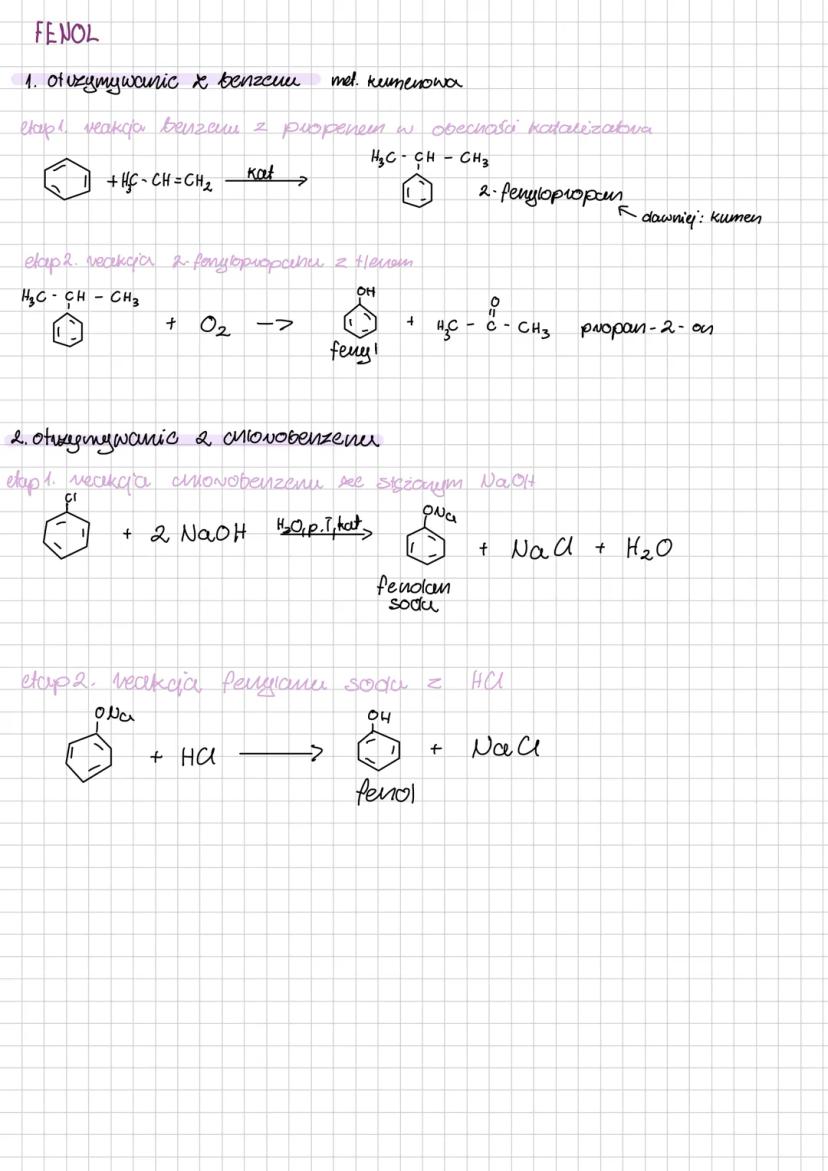 FENOL
1. otrzymywanie z benzenu met. kumenowa
etap 1. reakcja benzenu z propenem w obecności katalizatora
H₃C - CH - CH₃
+ H₃C - CH = CH₂ kat
2-fenylopropan
dawniej: kumen
etap 2. reakcja 2-fenylopropanu z tlenem
H₃C - CH - CH₃ OH O
+ O₂ -> + H₃C - C - CH₃ propan-2-on
fenyl
2. otrzymywanie z chlorobenzenu
etap 1. reakcja chlorobenzenu ze stężonym NaOH
Cl ONa
+ 2 NaOH H₂O, p. T, kat. + NaCl + H₂O
fenolan
sodu
etap 2. reakcja fenylanu sodu z HCl
ONa OH
+ HCl → + NaCl
fenol